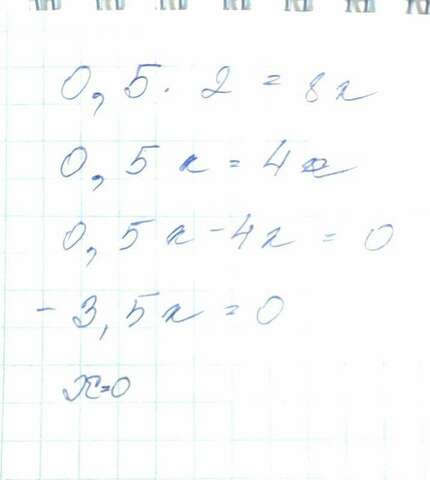 0,5·2=8x
0,5x=4x
0,5x-4x=0
-3,5x=0
x=0